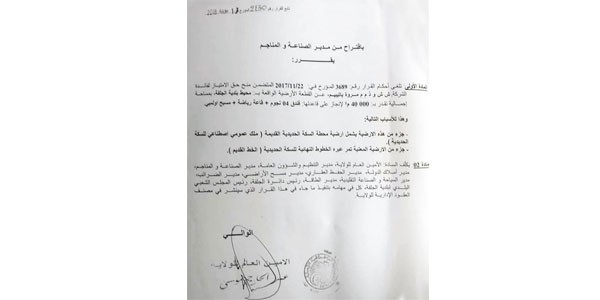 باقتراح من مدير الصناعة و المناجم
يقــــرر:
المادة الأولى: تلغى أحكام القرار رقم: 3689 المؤرخ في: 2017/11/22 المتضمن منح حق الامتياز لفائدة
الشركة ش ذ م م مروة عن القطعة الأرضية الواقعة بـ: محيط بلدية الجلفة، بمساحة
إجمالية تقدر بـ: 40 000 م² لإنجاز على قاعدتها: فندق 04 نجوم + قاعة رياضة + مسبح أولمبي
وهذا للأسباب التالية:
- جزء من هذه الأرضية يشمل أرضية محطة السكة الحديدية القديمة ( ملك عمومي اصطناعي للسكة
الحديدية ).
- جزء من الأرضية المعنية تمر عبره الخطوط النهائية للسكة الحديدية ( الخط القديم ).
المادة 02: يكلف السادة: الأمين العام للولاية، مدير التنظيم والشؤون العامة، مدير الصناعة و المناجم،
مدير أملاك الدولة، مدير الحفظ العقاري، مدير مسح الأراضي، مدير الضرائب،
مدير السياحة و الصناعة التقليدية، مدير الطاقة، رئيس دائرة الجلفة، رئيس المجلس الشعبي
البلدي لبلدية الجلفة، كل في مهامه بتنفيذ ما جاء في هذا القرار الذي سينشر في مصنف
العقود الإدارية للولاية.
الوالـــي
الأمين العام للولاية